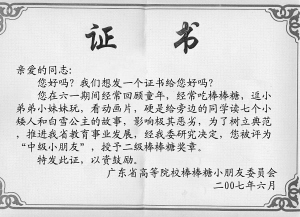 证书
亲爱的同志：
您好吗？我们想发一个证书给您好吗？
您在六一期间经常回顾童年，经常吃棒棒糖，逗小
弟弟小妹妹玩，看动画片，硬是给旁边的同学读七个小
矮人和白雪公主的故事，影响极其恶劣，为了树立典范
，推进我省教育事业发展，经我委研究决定，您被评为
“中级小朋友”，授予二级棒棒糖奖章。
特发此证，以资鼓励。
广东省高等院校棒棒糖小朋友委员会
二00七年六月